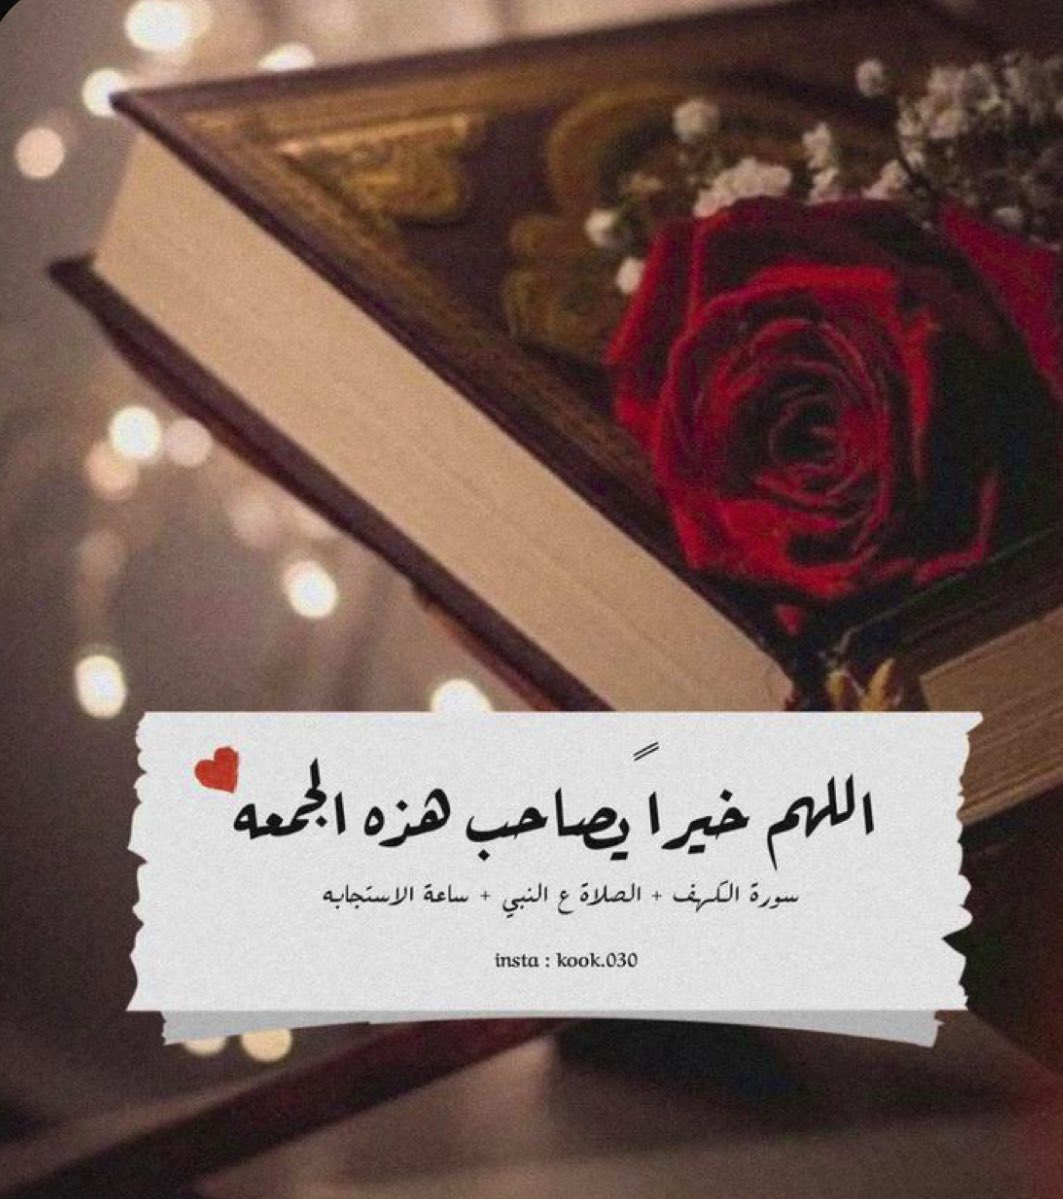 اللهم خيراً يصاحب هذه الجمعه
سورة الكهف + الصلاة ع النبي + ساعة الاستجابه
insta : kook.030